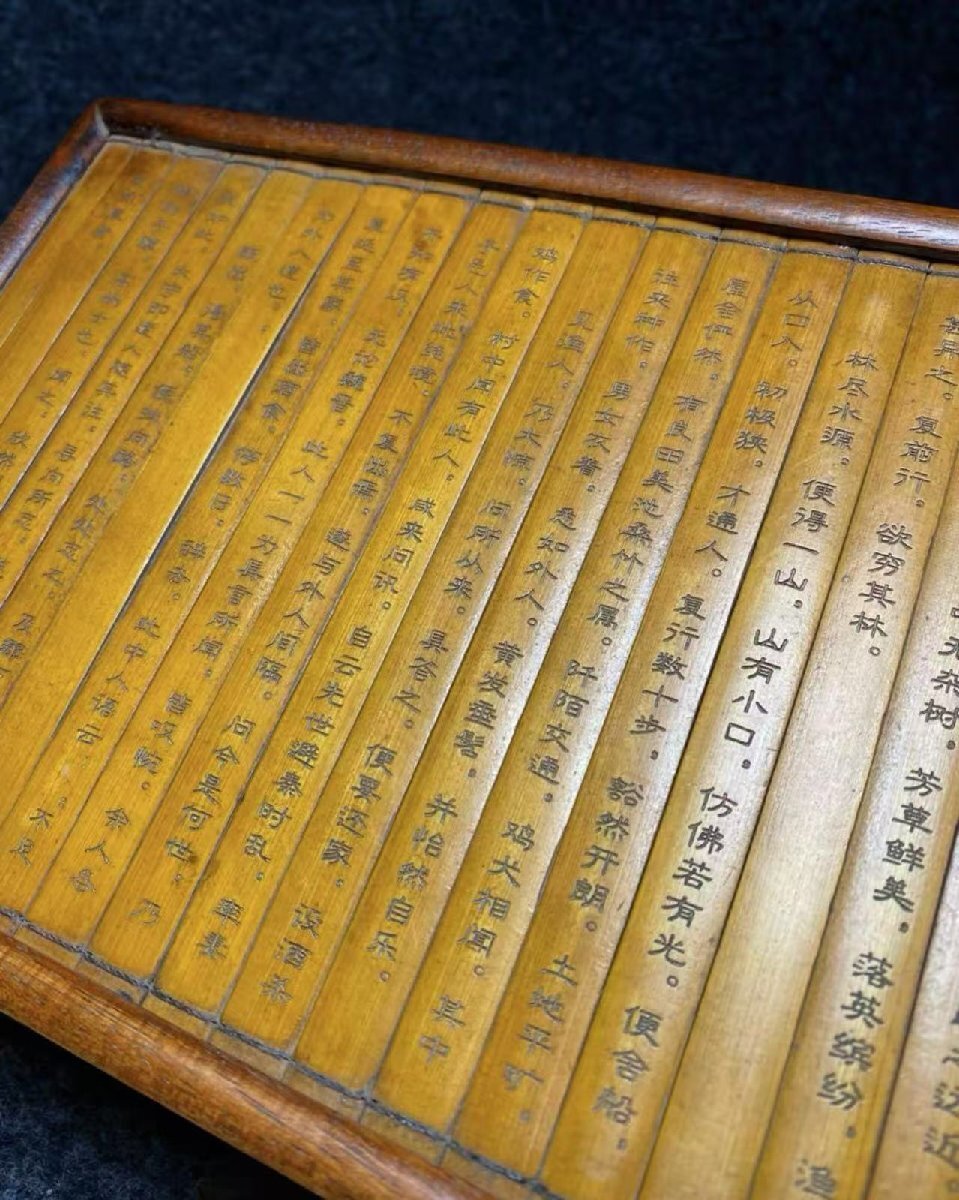 之远近
中无杂树。芳草鲜美。落英缤纷。渔
甚异之。复前行。欲穷其林。
林尽水源。便得一山。山有小口。仿佛若有光。便舍船。
从口入。初极狭。才通人。复行数十步。豁然开朗。土地平旷。
屋舍俨然。有良田美池桑竹之属。阡陌交通。鸡犬相闻。其中
往来种作。男女衣着。悉如外人。黄发垂髫。并怡然自乐。
见渔人。乃大惊。问所从来。具答之。便要还家。设酒杀
鸡作食。村中闻有此人。咸来问讯。自云先世避秦时乱。率妻
子邑人来此绝境。不复出焉。遂与外人间隔。问今是何世。乃
不知有汉。无论魏晋。此人一一为具言所闻。皆叹惋。余人各
复延至其家。皆出酒食。停数日。辞去。此中人语云。不足
为外人道也。
既出。得其船。便扶向路。处处志之。及郡
如此。太守即遣人随其往。寻向所志。
士也。闻之。欣然